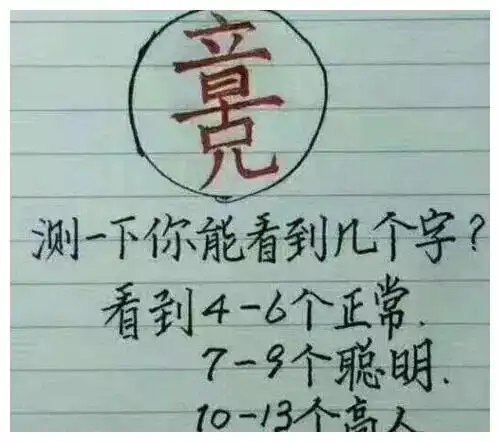 测一下你能看到几个字?
看到4-6个正常.
7-9个聪明.
10-13个高人